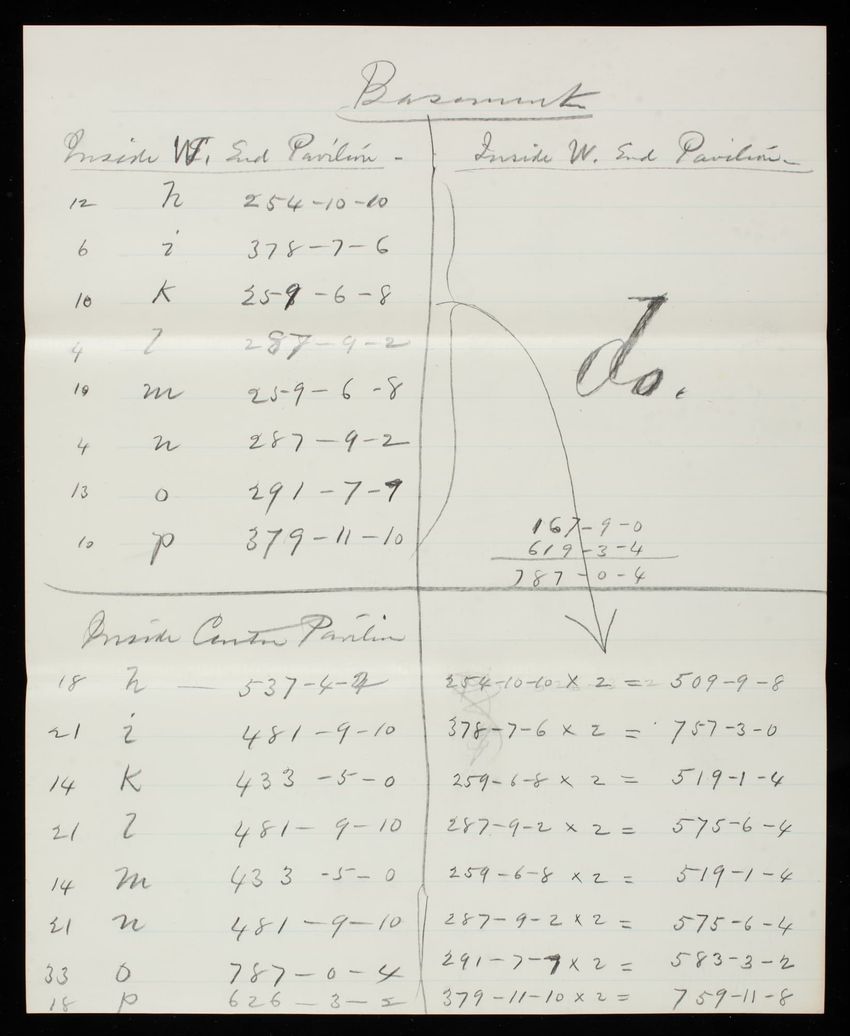 Basement
Inside W. End Pavilion -
12 h 254-10-10
6 i 378-7-6
10 K 259-6-8
4 l 287-9-2
10 m 259-6-8
4 n 287-9-2
13 o 291-7-7
10 p 379-11-10
Inside W. End Pavilion -
do.
167-9-0
619-3-4
787-0-4
Inside Center Pavilion
18 h — 537-4-2
21 i 481-9-10
14 K 433-5-0
21 l 481-9-10
14 m 433-5-0
21 n 481-9-10
33 o 787-0-4
18 p 626-3-2
254-10-10 x 2 = 509-9-8
378-7-6 x 2 = 757-3-0
259-6-8 x 2 = 519-1-4
287-9-2 x 2 = 575-6-4
259-6-8 x 2 = 519-1-4
287-9-2 x 2 = 575-6-4
291-7-7 x 2 = 583-3-2
379-11-10 x 2 = 759-11-8